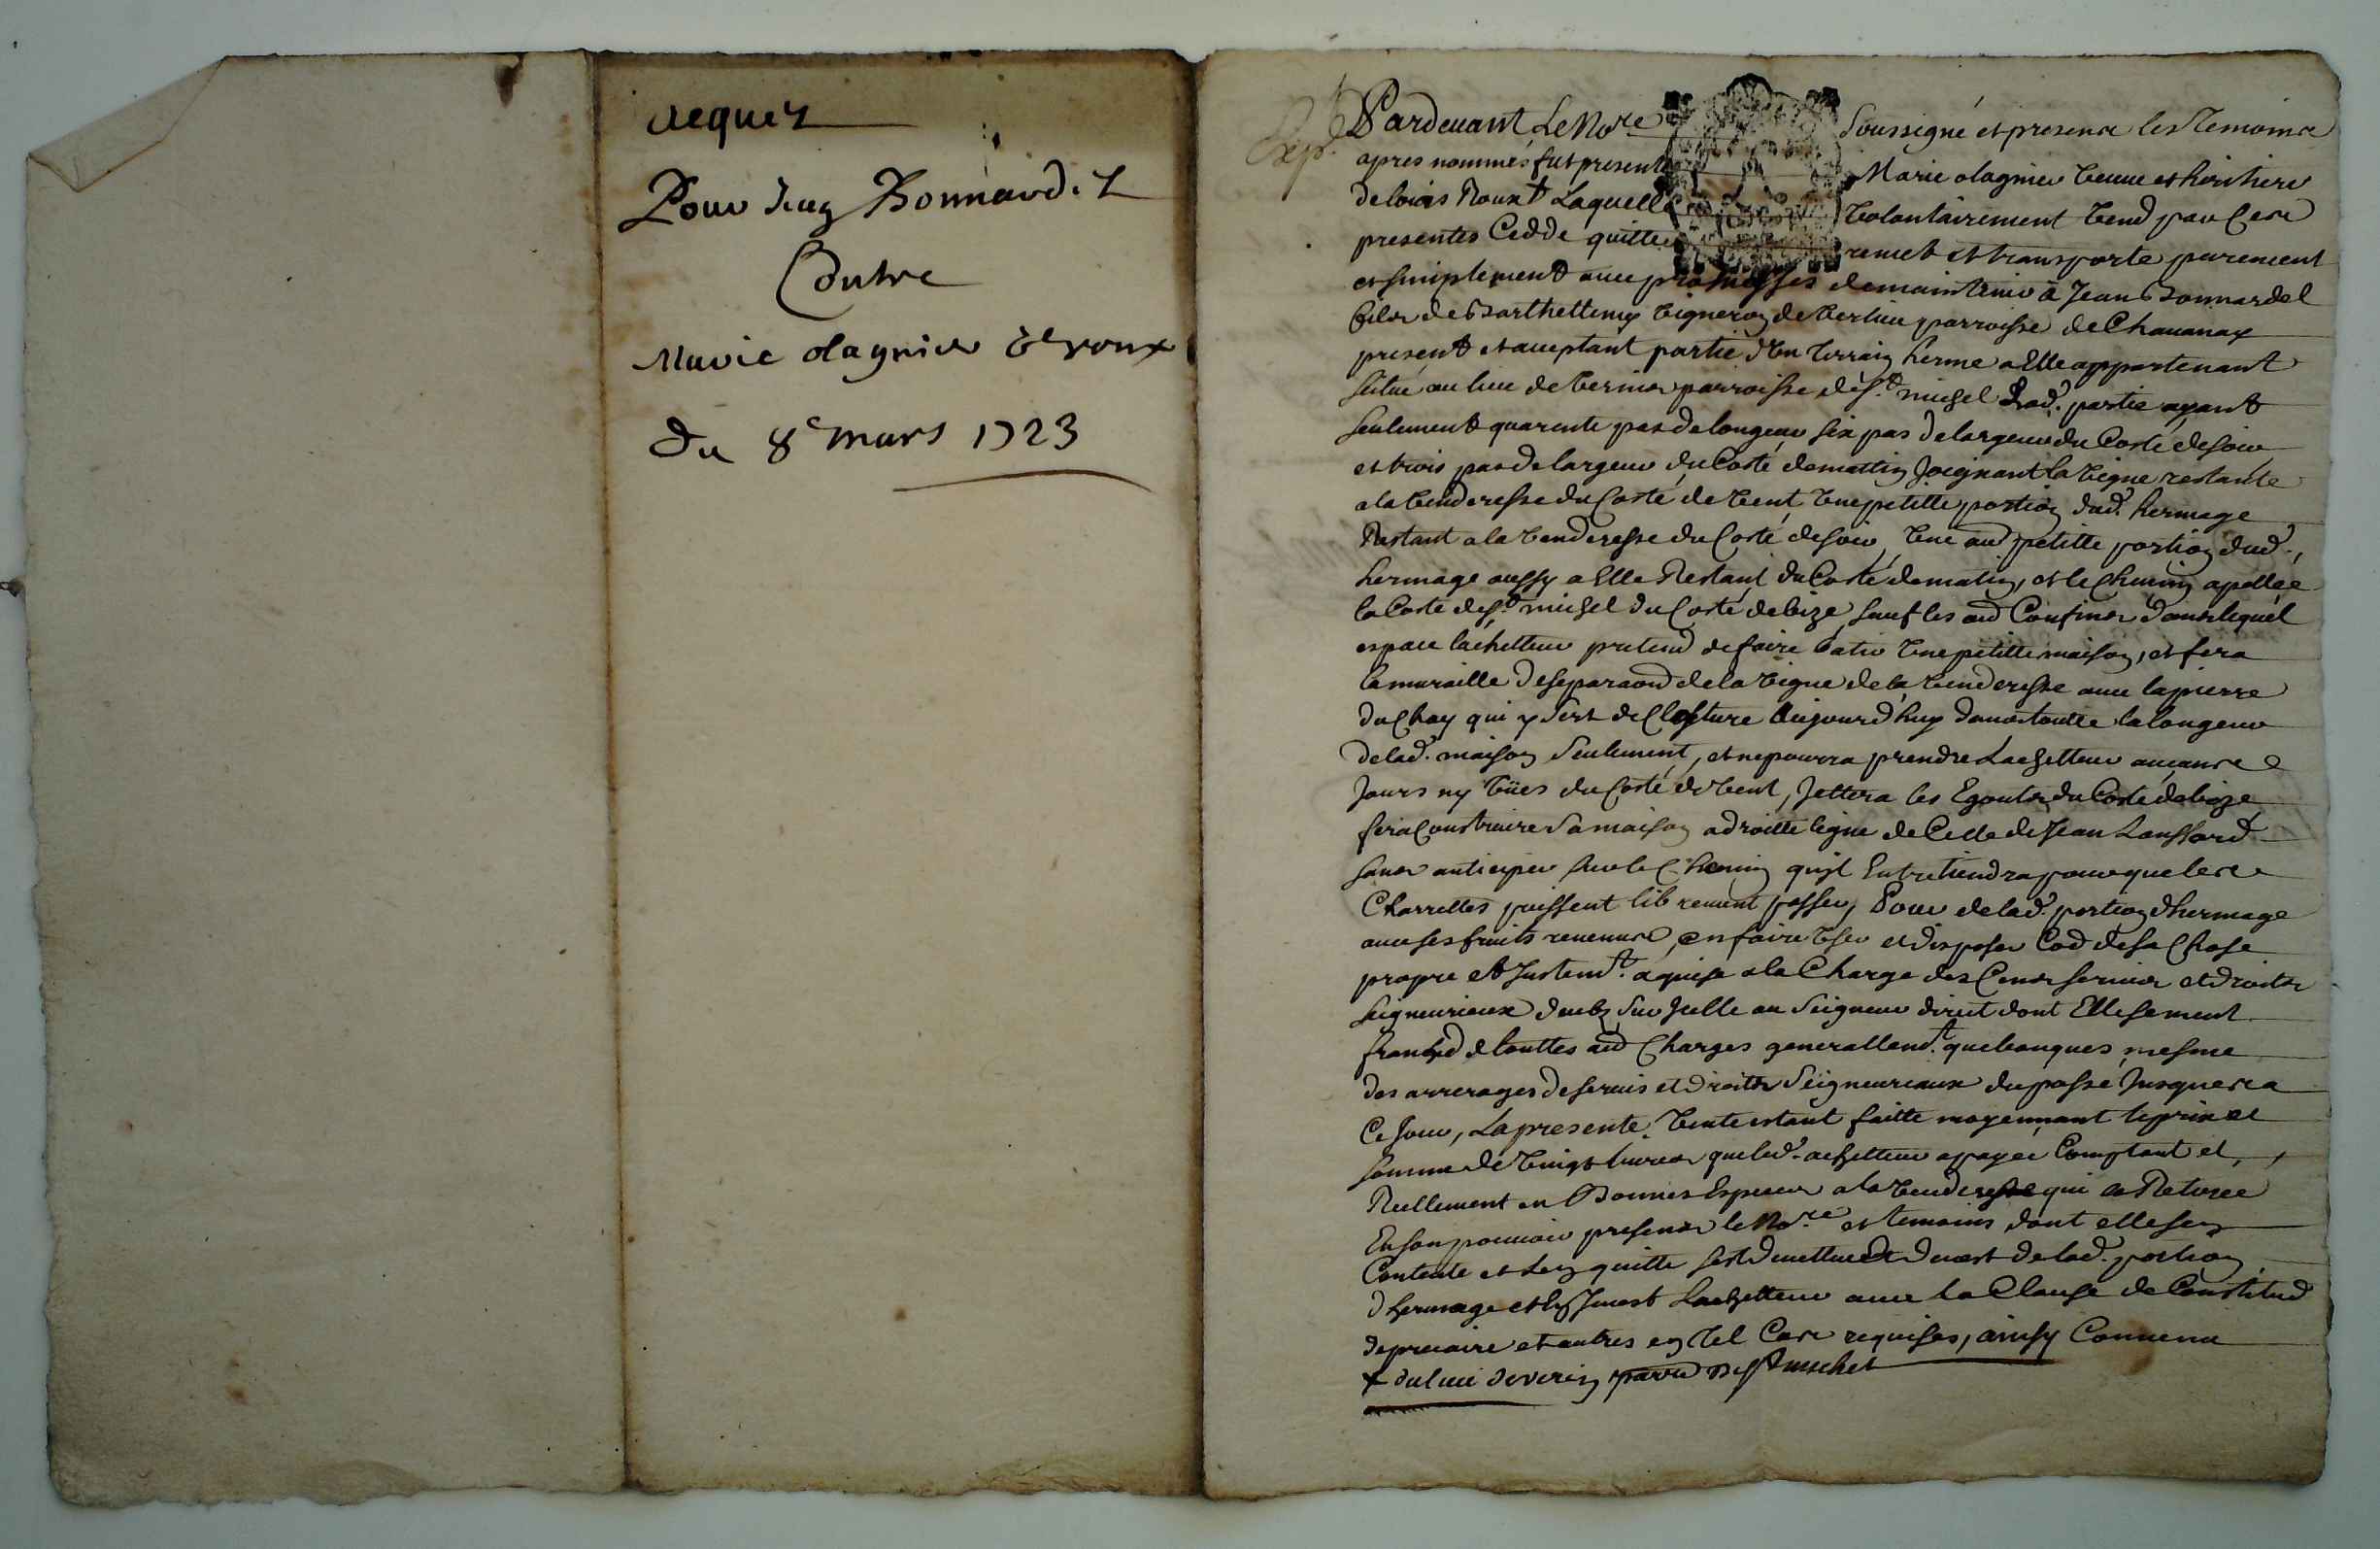 acquis
Pour Jean Bonnardel
Contre
Marie olagnier ve roux
Du 8e mars 1723
Exp.
Pardevant Le Nore soussigné et presence les Temoins
apres nommés fut presente Marie olagnier veuve et heritiere
de loüis Roux + Laquelle volontairement vend par Ces
presentes Cedde quitte remet et transporte purement
et simplement avec promesses de maintenir à Jean Bonnardel
fils de Barthellemy vigneron de verlieu parroisse de Chavanay
present et acceptant partie d'Un terrain herme a Elle apportenant
scitué au lieu de parroisse de St. michel Lad. partie ayant
seulement quarente pas de longeur six pas de largeur du Costé de soir
et trois pas de largeur du Costé de mattin Joignant la vigne restante
a la venderesse du Costé de vent Une petitte portion dud. hermage
Restant a la venderesse du Costé de soir, Une aud petitte portion dud.
hermage aussy a Elle Restant du Costé de matin, et le Chemin apellée
la Coste de St. michel du Costé de bize sauf les aud Confins dans lequel
espace l'achetteur pretend de faire batir Une petitte maison, et fera
la muraille de separaon de la vigne de la venderesse avec la pierre
du Chay qui y sert de Closture aujourd'huy dans toutte la longeur
de lad. maison seulement, et ne pourra prendre Lachetteur aucuns
Jours ny vües du Costé de vent, Jettera les Egouts du Costé de bize
fera Construire sa maison a droitte ligne de Celle de Jean
sans anticiper sur le Chemin qu'jl Entretiendra pour que les
Charrettes puissent librement passer, Pour de lad. portion d'hermage
avec ses fruits revenus, en faire User et disposer Coe de sa Chose
propre et Justemt. aquise a la Charge des Cens servis et droits
seigneuriaux deubs sur Jcelle au seigneur direct dont Elle se ment
franche de touttes aud Charges generallemt. quelconques mesme
des arrerages de servis et droits seigneuriaux du passé Jusques a
Ce Jour, La presente vente estant faitte moyennant le prix et
somme de vingt livres que led. achetteur a payée Comptant et
Reellement en Bonnes Especes a la venderesse qui la Retirée
En son pouvoir presence le Nore et temoins dont elle sen
Contente et Len quitte sest demettue et devest de lad. portion
d'hermage et en Jnvest Lachetteur avec la Clause de Constitud
de precaire et autres en tel Cas requises, ainsy Convenu
+ du lieu de verin parr de St michel